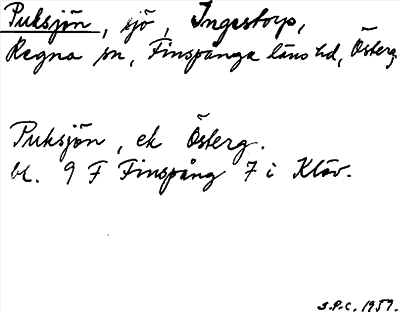 Puksjön, sjö, Ingestorp,
Regna sn, Finspånga läns hd, Österg.
Puksjön, ek Österg.
bl. 9 F Finspång 7 i Klöv.
S.P.C. 1959.